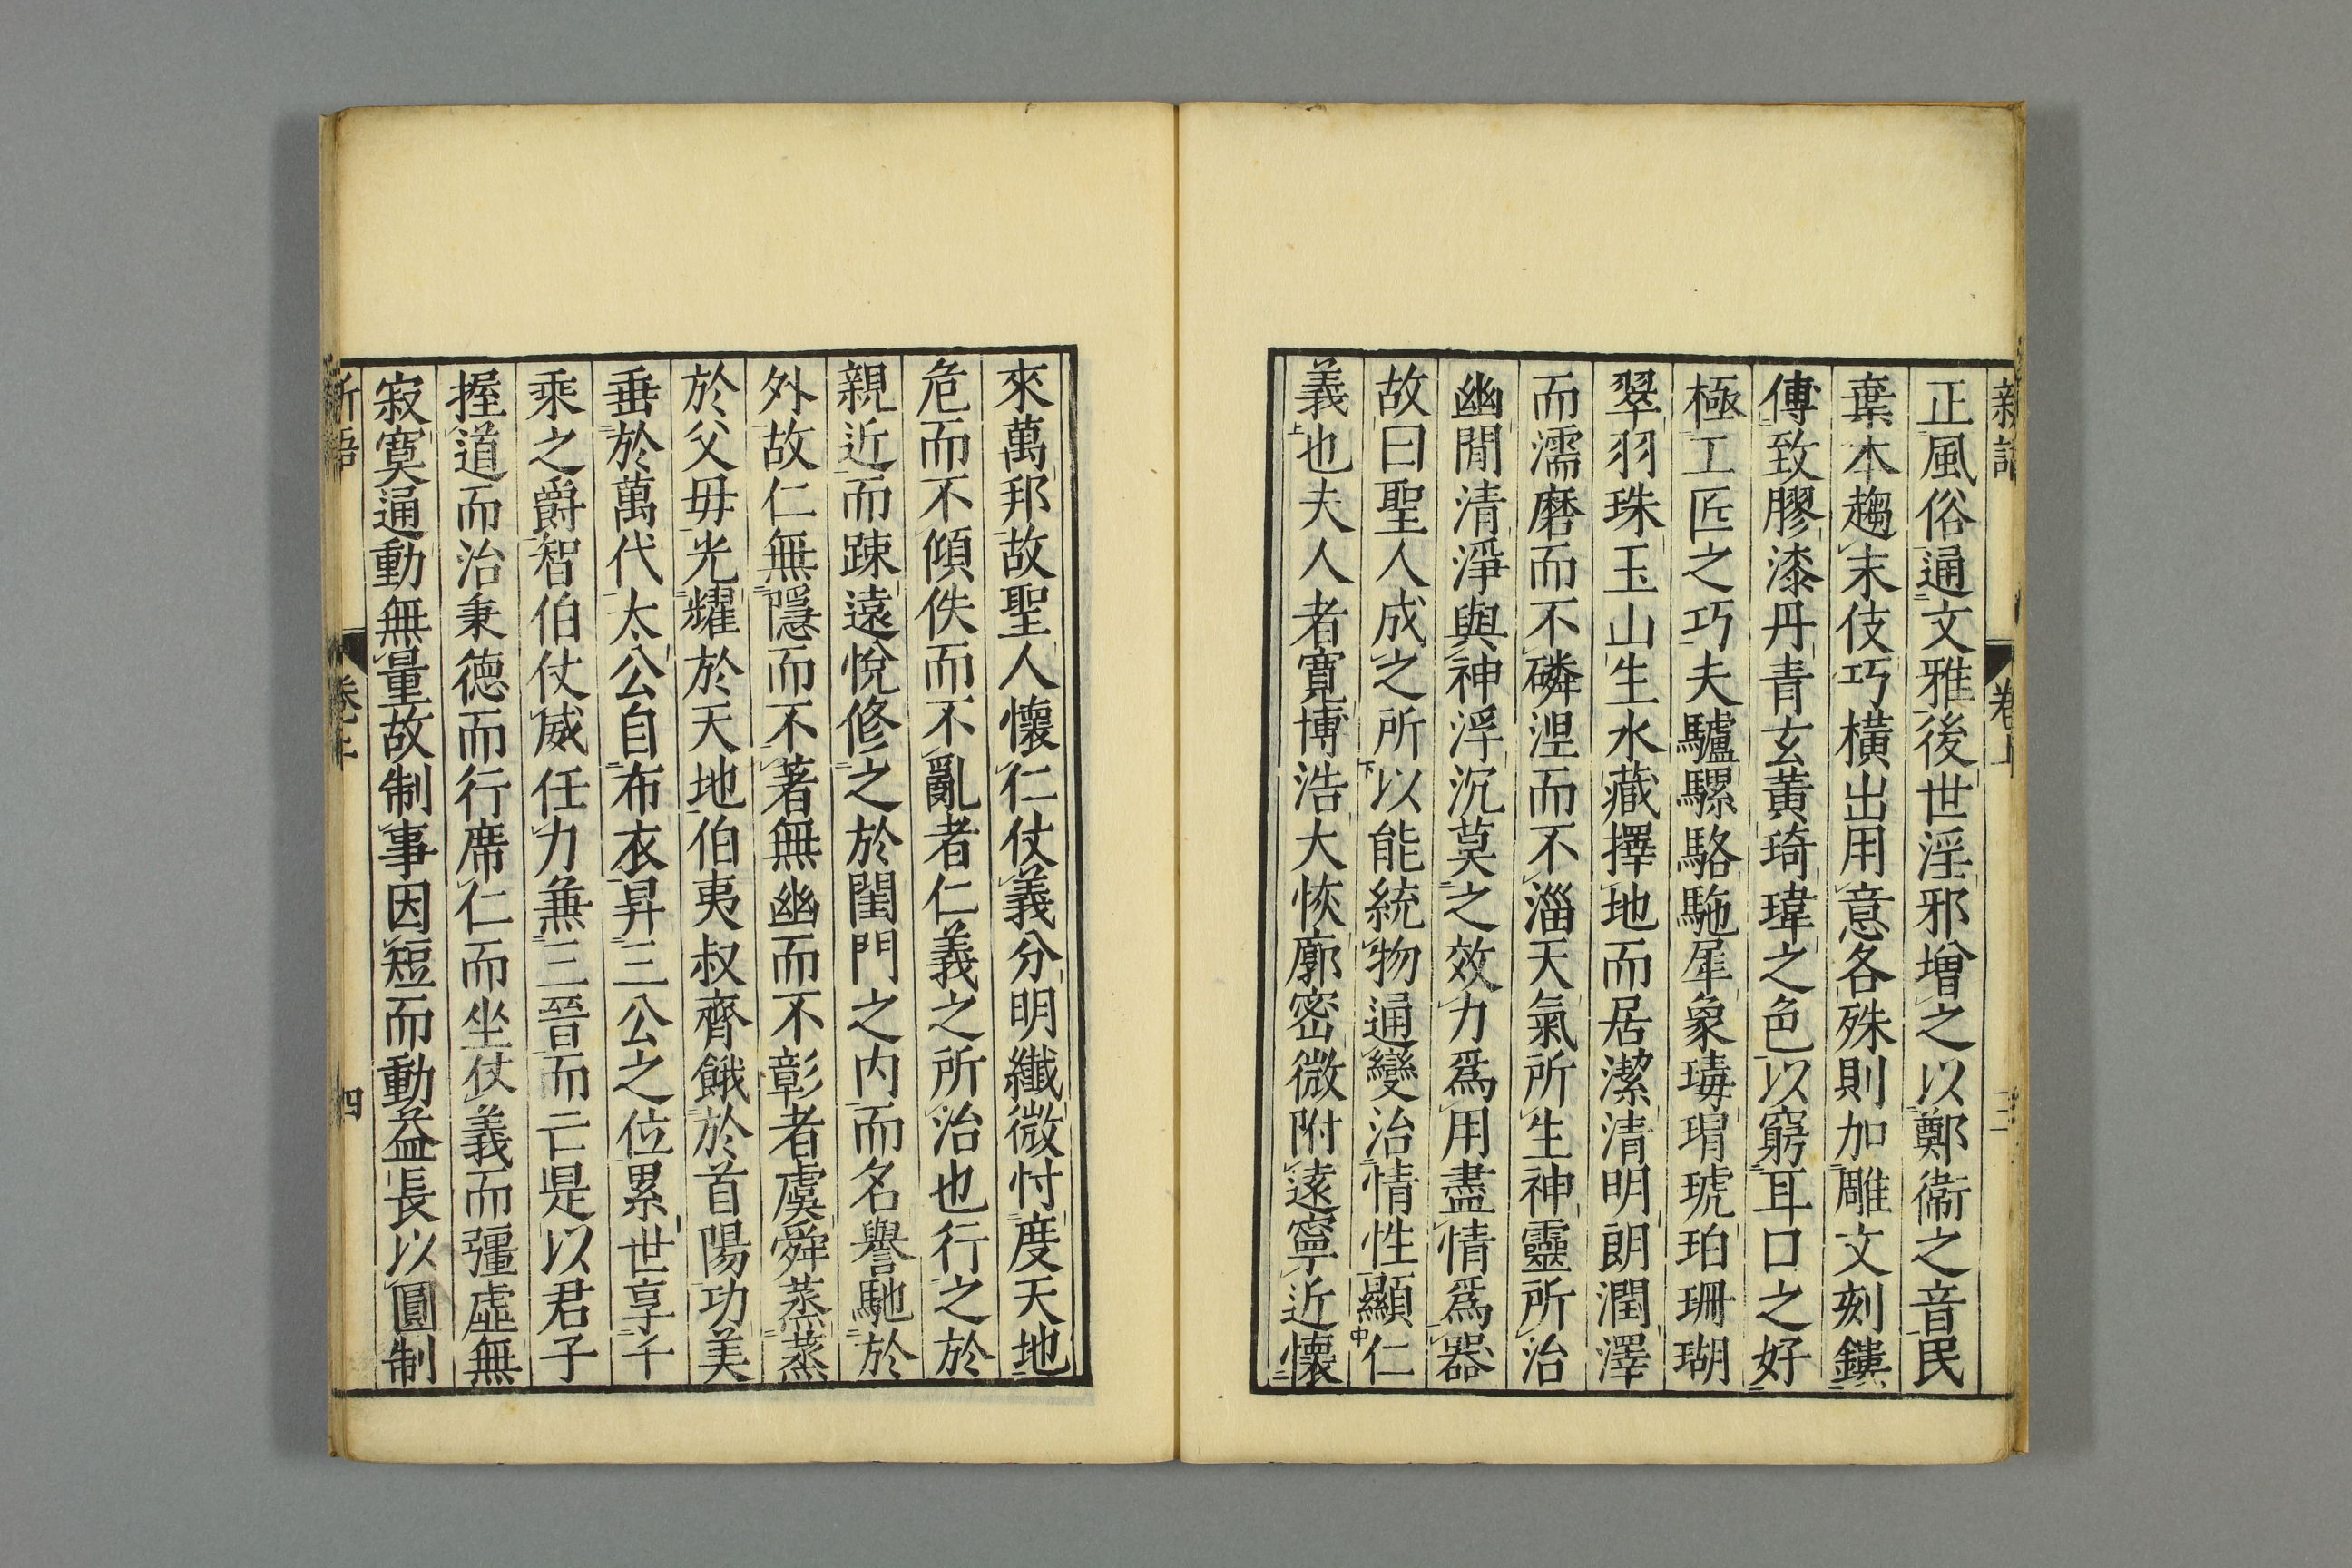 新語 卷上 三
正風俗通文雅後世淫邪增之以鄭衞之音民
棄本趨末伎巧橫出用意各殊則加雕文刻鏤
傅致膠漆丹青玄黃琦瑋之色以窮耳口之好
極工匠之巧夫驢騾駱駞犀象瑇瑁琥珀珊瑚
翠羽珠玉山生水藏擇地而居潔清明朗潤澤
而濡磨而不磷涅而不淄天氣所生神靈所治
幽閒清淨與神浮沉莫之效力爲用盡情爲器
故曰聖人成之所以能統物通變治情性顯仁
義也夫人者寛博浩大恢廓密微附遠寧近懷
來萬邦故聖人懷仁仗義分明纖微忖度天地
危而不傾佚而不亂者仁義之所治也行之於
親近而踈遠悅修之於閨門之内而名譽馳於
外故仁無隱而不著無幽而不彰者虞舜蒸蒸
於父毋光耀於天地伯夷叔齊餓於首陽功美
垂於萬代太公自布衣昇三公之位累世享千
乘之爵智伯仗威任力兼三晉而亡是以君子
握道而治秉德而行席仁而坐仗義而彊虛無
寂寞通動無量故制事因短而動益長以圓制
新語 卷上 四